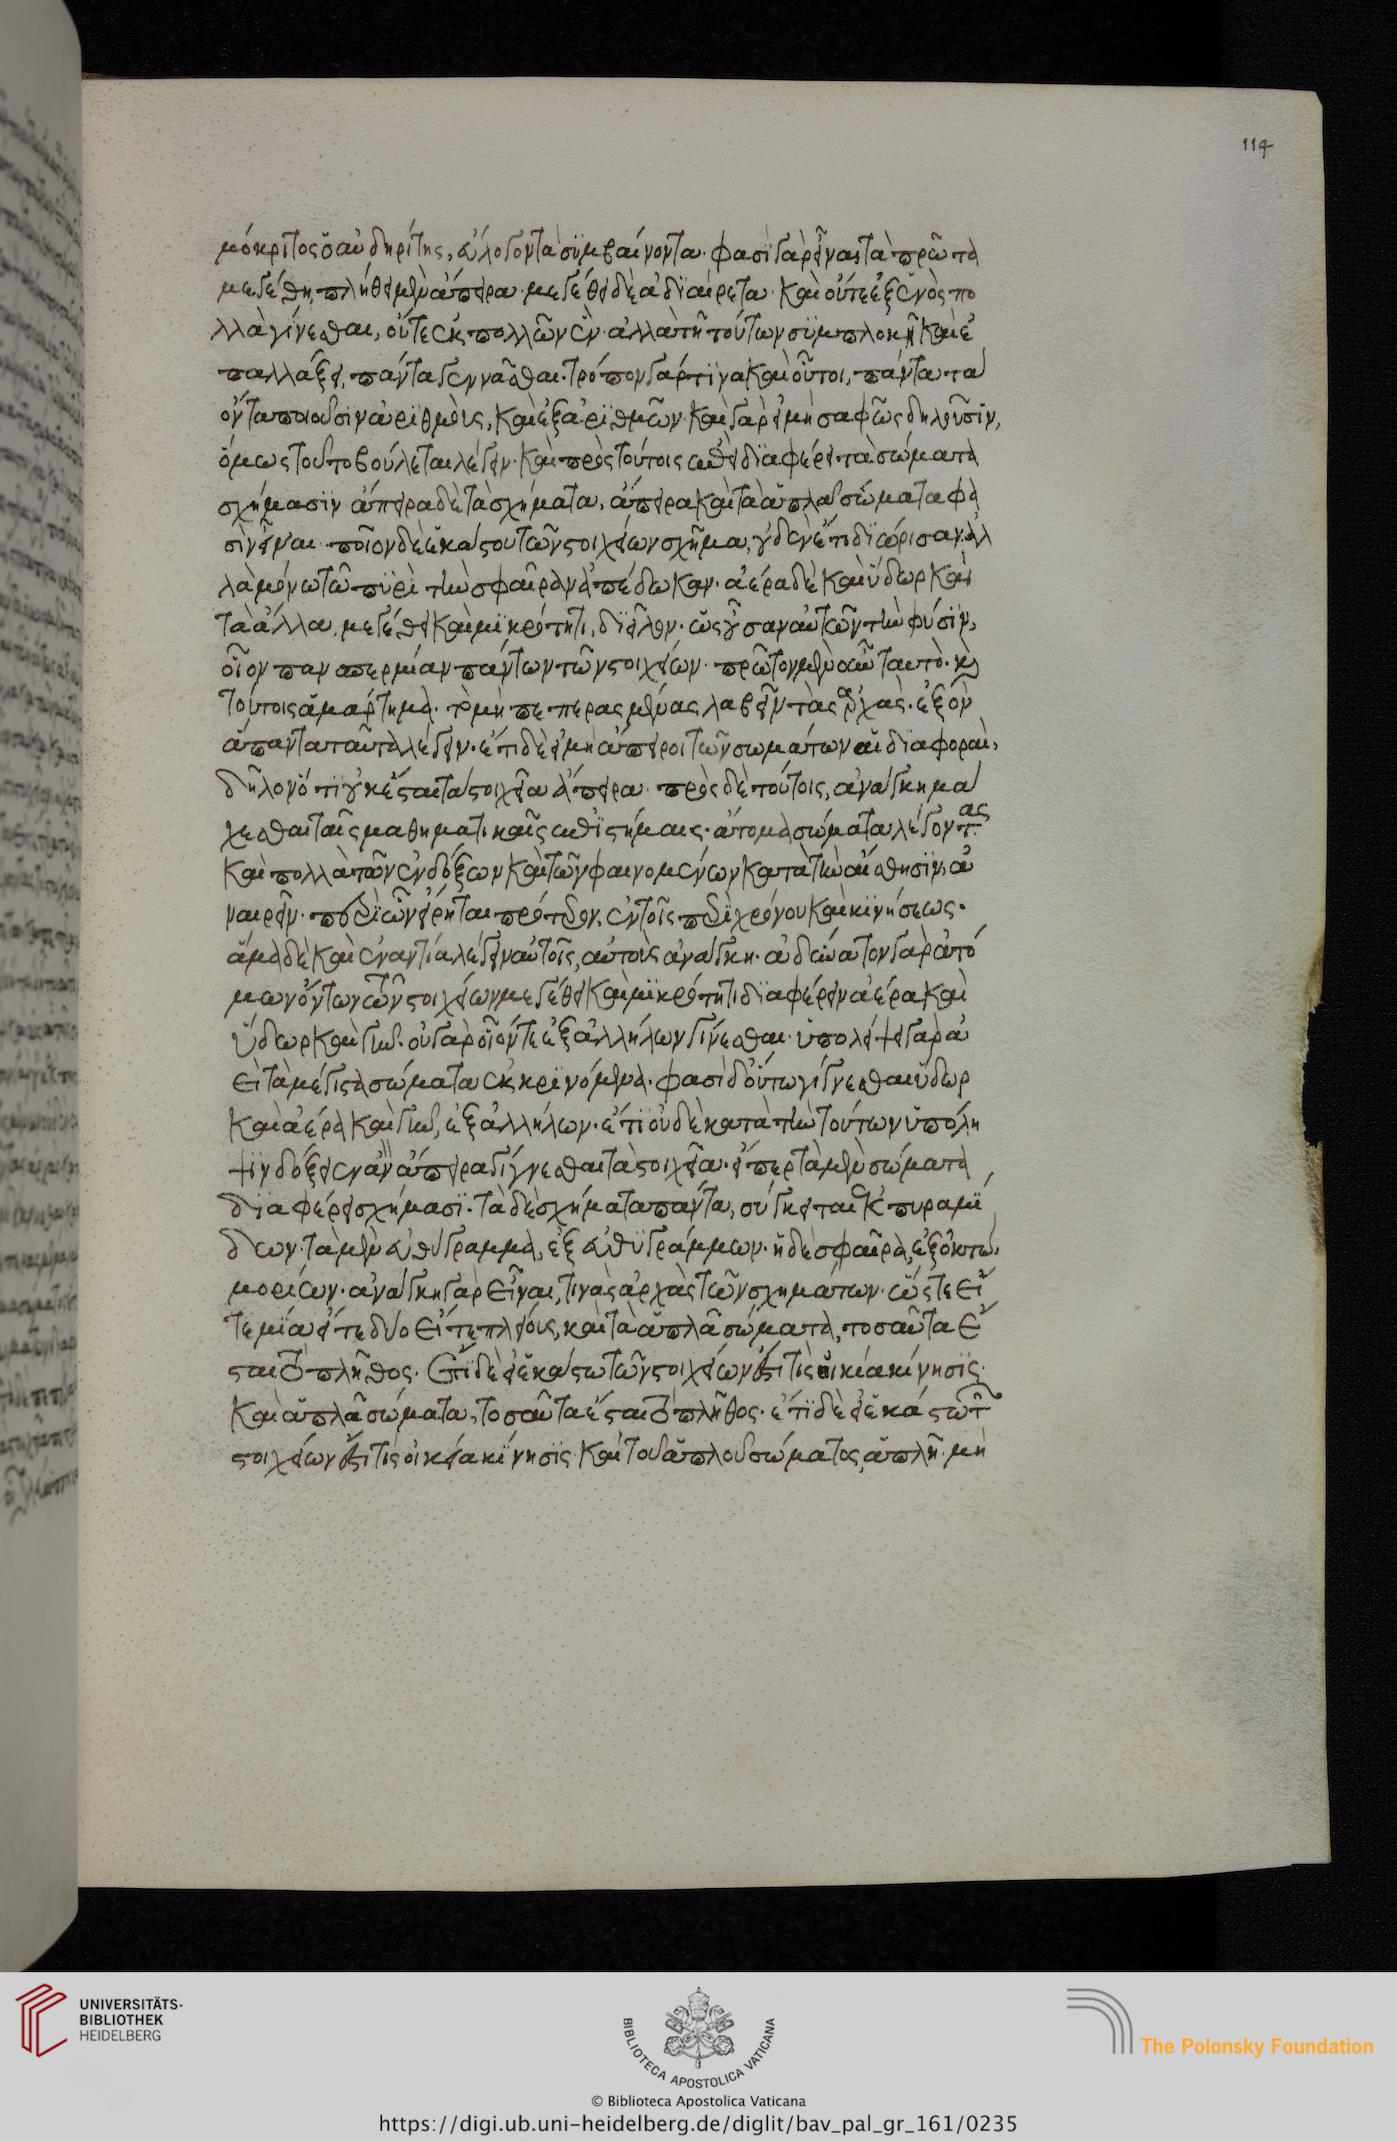 μόκριτος ὁ αὐδηρίτης, εὔλογον τὰ συμβαίνοντα· φασὶ γὰρ εἶναι τὰ πρῶτα
μεγέθη, πλήθει μὲν ἄπειρα· μεγέθει δὲ ἀδιαίρετα· καὶ οὔτε ἐξ ἑνὸς πο
λλὰ γίνεσθαι, οὔτε ἐκ πολλῶν ἕν· ἀλλὰ τῇ τούτων συμπλοκῇ καὶ ἐ
παλλάξει, πάντα γεννᾶσθαι· τρόπον γάρ τινα καὶ οὗτοι, πάντα τὰ
ὄντα ποιοῦσιν ἀριθμοὺς, καὶ ἐξ ἀριθμῶν· καὶ γὰρ εἰ μὴ σαφῶς δηλοῦσιν,
ὅμως τοῦτο βούλεται λέγειν· καὶ πρὸς τούτοις ἐπεὶ διαφέρει τὰ σώματα
σχήμασιν ἄπειρα δὲ τὰ σχήματα, ἄπειρα καὶ τὰ ἁπλᾶ σώματα φα
σὶν εἶναι· ποῖον δὲ ἑκάστου τῶν στοιχείων σχῆμα, οὐδὲν ἐπιδιώρισαν· ἀλ
λὰ μόνω τῶ πυρὶ τὴν σφαῖραν ἀπέδωκαν· ἀέρα δὲ καὶ ὕδωρ καὶ
τὰ ἄλλα, μεγέθει καὶ μικρότητι, διεῖλον· ὡς οὖσαν αὐτῶν τὴν φύσιν,
οἷον πανσπερμίαν πάντων τῶν στοιχείων· πρῶτον μὲν οὖν ταυτὸ· καὶ
τούτοις ἁμάρτημα· τὸ μὴ πεπερασμένας λαβεῖν τὰς ἀρχὰς· ἐξὸν
ἅπαντα ταῦτα λέγειν· ἔτι δὲ εἰ μὴ ἄπειροι τῶν σωμάτων αἱ διαφοραὶ,
δῆλον ὅτι οὐκ ἔσται τὰ στοιχεῖα ἄπειρα· πρὸς δὲ τούτοις, ἀνάγκη μά
χεσθαι ταῖς μαθηματικαῖς ἐπιστήμαις· ἄτομα σώματα λέγοντας
καὶ πολλὰ τῶν ἐνδόξων καὶ τῶν φαινομένων κατὰ τὴν αἴσθησιν, ἀ
ναιρεῖν· περὶ ὧν εἴρηται πρότερον, ἐν τοῖς περὶ χρόνου καὶ κινήσεως·
ἅμα δὲ καὶ ἐναντία λέγειν αὐτοῖς, αὐτοὺς ἀνάγκη· ἀδύνατον γὰρ ἀτό
μων ὄντων τῶν στοιχείων μεγέθει καὶ μικρότητι διαφέρειν ἀέρα καὶ
ὕδωρ καὶ γῆν· οὐ γὰρ οἷόν τε ἐξ ἀλλήλων γίνεσθαι· ὑπολείψει γὰρ ἀ
εὶ τὰ μέγιστα σώματα ἐκκρινόμενα· φασὶ δ' οὕτω γίγνεσθαι ὕδωρ
καὶ ἀέρα καὶ γῆν, ἐξ ἀλλήλων· ἔτι οὐδὲ κατὰ τὴν τούτων ὑπόλη
ψιν δόξειεν ἂν ἄπειρα γίγνεσθαι τὰ στοιχεῖα· εἴπερ τὰ μὲν σώματα
διαφέρει σχήμασι· τὰ δὲ σχήματα πάντα, σύγκειται ἐκ πυραμί
δων· τὰ μὲν εὐθύγραμμα, ἐξ εὐθυγράμμων· ἡ δὲ σφαῖρα, ἐξ ὀκτὼ
μορίων· ἀνάγκη γὰρ εἶναι, τινὰς ἀρχὰς τῶν σχημάτων· ὥστε εἴ
τε μία εἴτε δύο εἴτε πλείους, καὶ τὰ ἁπλᾶ σώματα, τοσαῦτα ἔ
σται τὸ πλῆθος· ἔτι δὲ εἰ ἑκάστω τῶν στοιχείων ἐστί τις οἰκία κίνησις·
καὶ ἁπλᾶ σώματα, τοσαῦτα ἔσται τὸ πλῆθος· ἔτι δὲ εἰ ἑκάστω τῶν
στοιχείων ἐστί τις οἰκεία κίνησις καὶ τοῦ ἁπλοῦ σώματος, ἁπλῆ· μὴ
114
UNIVERSITÄTS-
BIBLIOTHEK
HEIDELBERG
BIBLIOTECA APOSTOLICA VATICANA
© Biblioteca Apostolica Vaticana
The Polonsky Foundation
https://digi.ub.uni-heidelberg.de/diglit/bav_pal_gr_161/0235